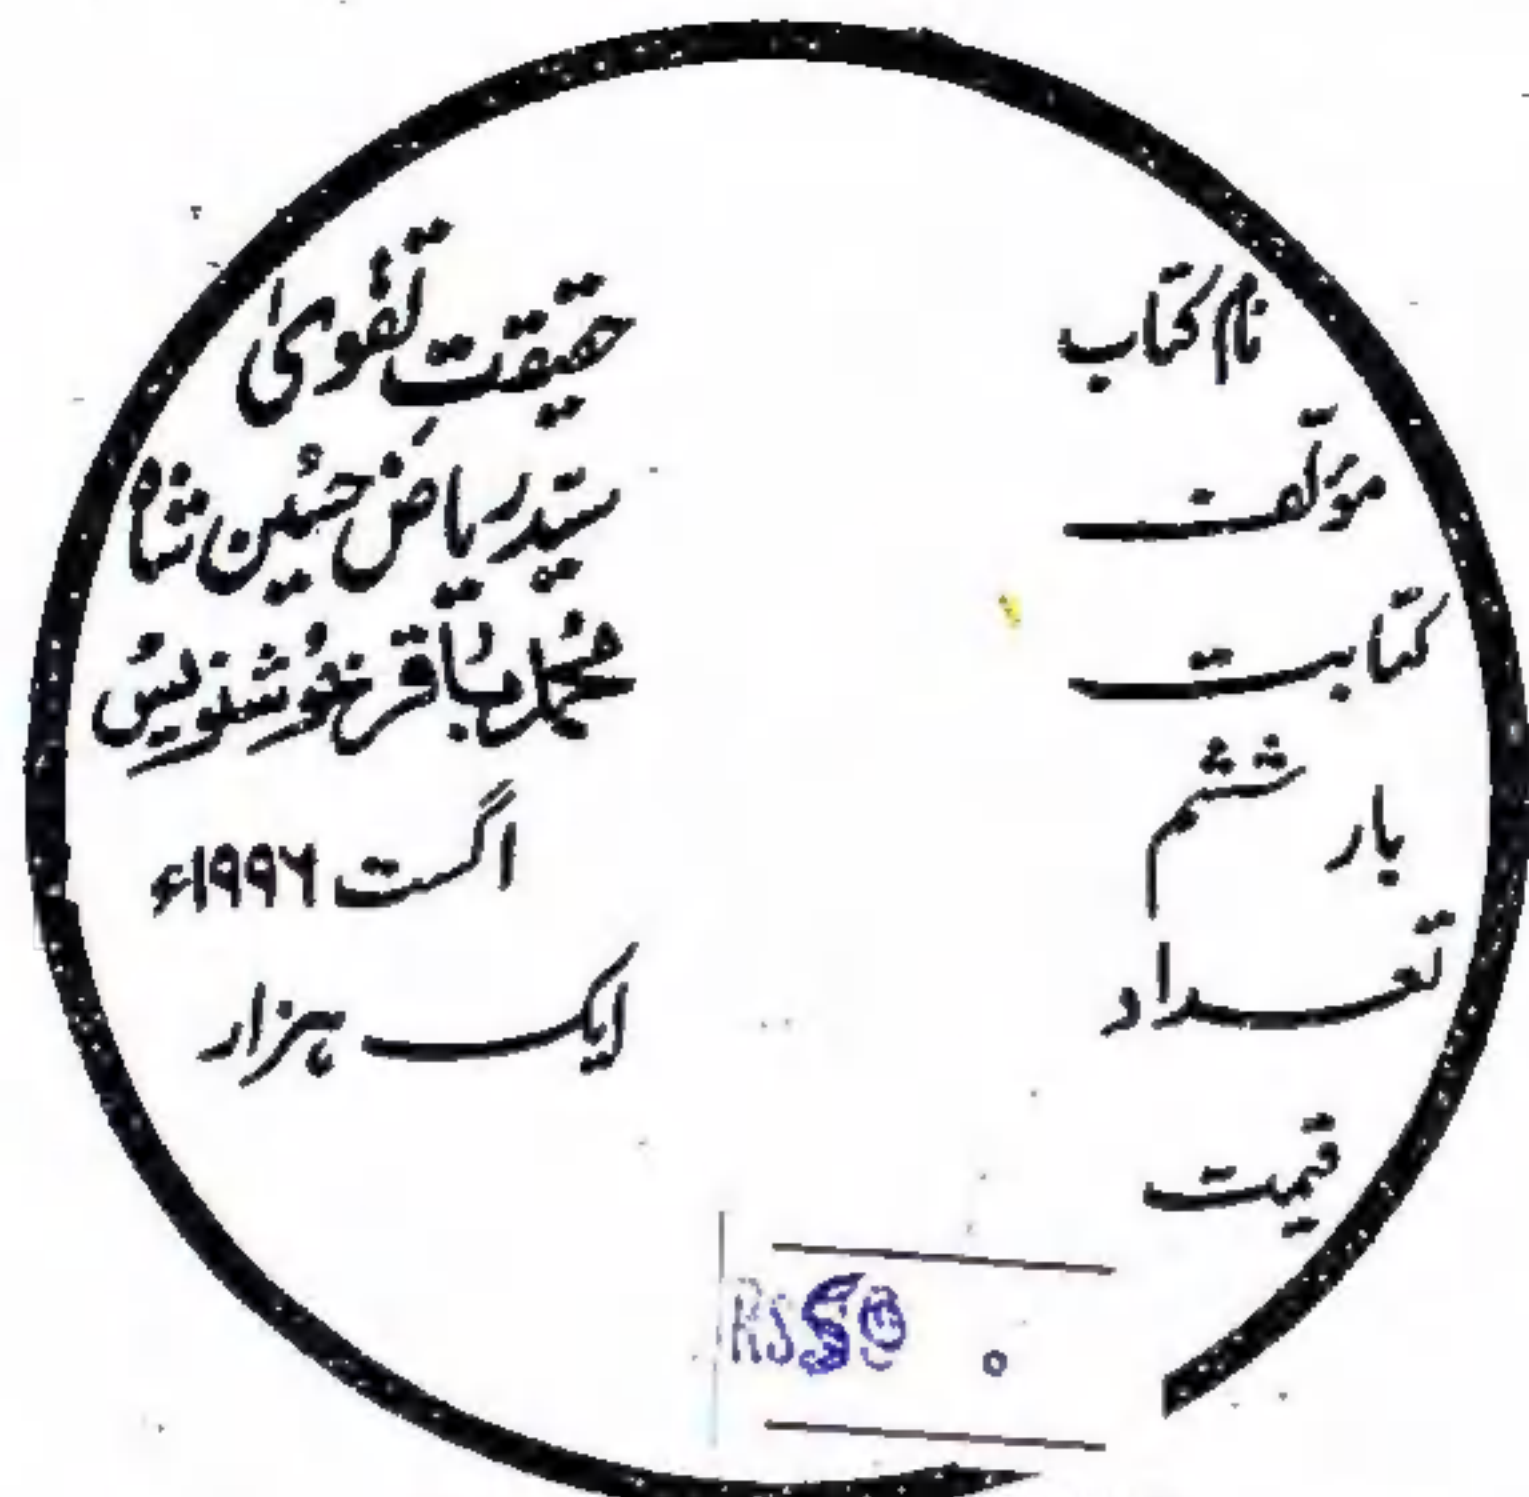 نام کتاب حقیقتِ تقویٰ
مؤلف سیّد ریاض حسین شاہ
کتابت محمد باقر خوشنویس
بار ششم اگست ۱۹۹۶ء
تعداد ایک ہزار
قیمت
RS 50